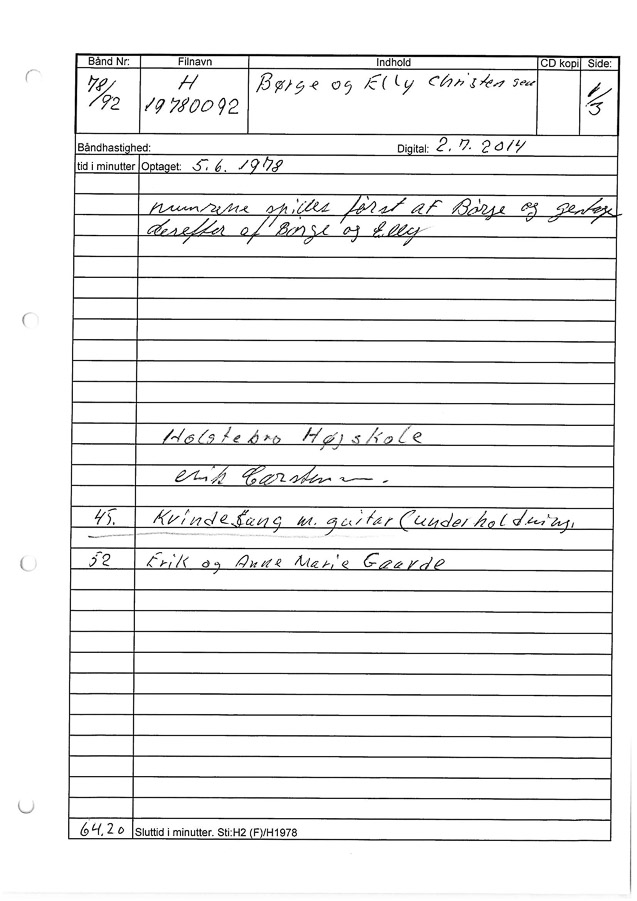 Bånd Nr: Filnavn Indhold CD kopi Side:
78/92 H 19780092 Børge og Elly Christensen 1/3
Båndhastighed: Digital: 2.7. 2014
tid i minutter Optaget: 5.6. 1978
numrene spilles først af Børge og gentages
derefter af Børge og Elly
Holstebro Højskole
erik
45. Kvindesang m. guitar (underholdning)
52 Erik og Anne Marie Gaarde
64,20 Sluttid i minutter. Sti:H2 (F)/H1978